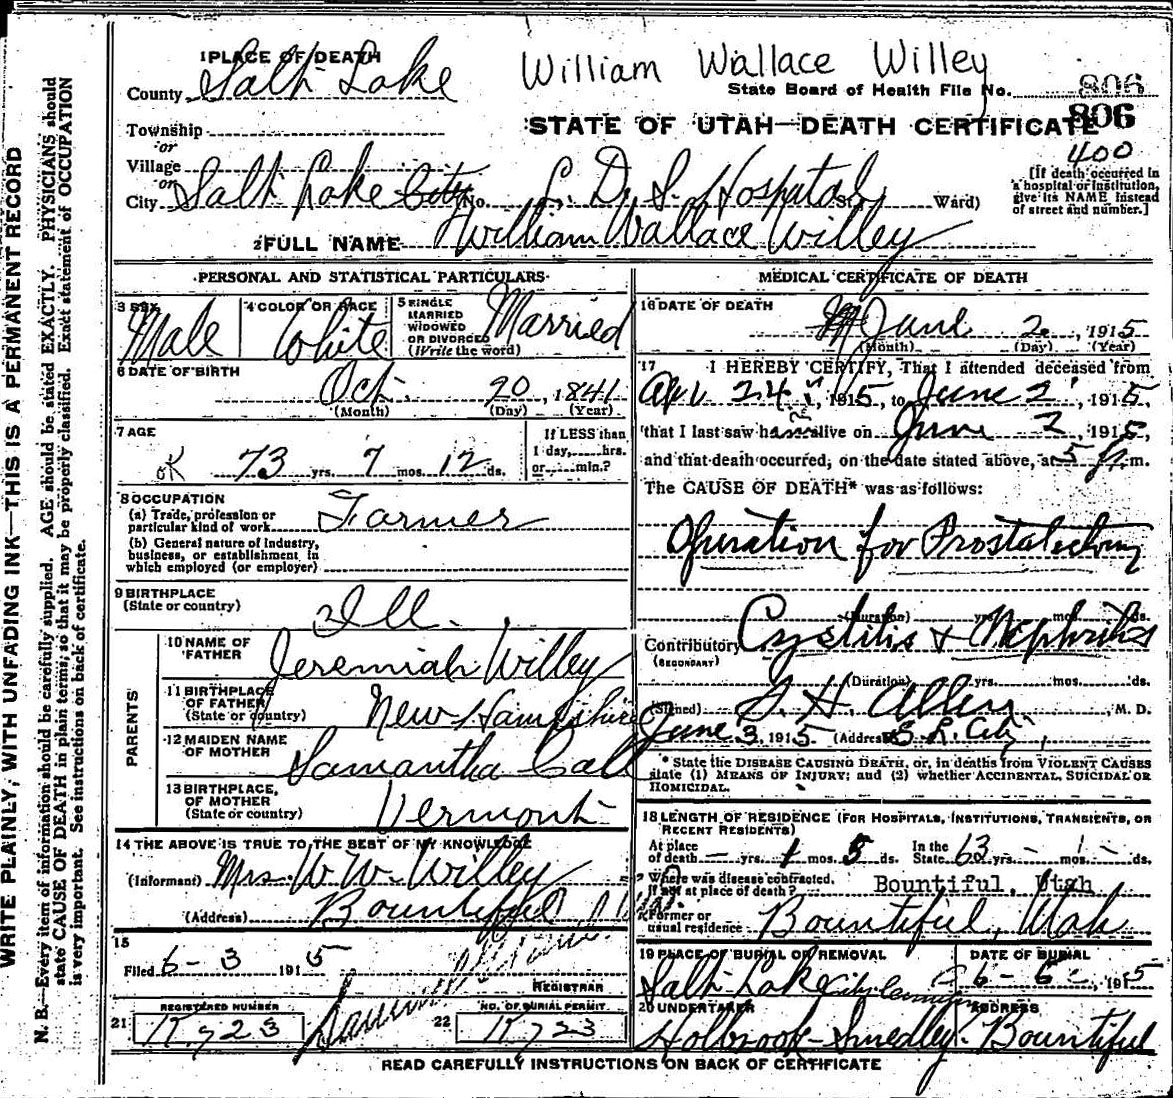 William Wallace Willey
1 PLACE OF DEATH
County Salt Lake
State Board of Health File No. 806
Township
STATE OF UTAH—DEATH CERTIFICATE 806
or
Village
400
or
City Salt Lake City No. L. D. S. Hospital St. Ward)
[If death occurred in
a hospital or institution,
give its NAME instead
of street and number.]
2 FULL NAME William Wallace Willey
PERSONAL AND STATISTICAL PARTICULARS
3 SEX Male
4 COLOR OR RACE White
5 SINGLE
MARRIED
WIDOWED
OR DIVORCED
(Write the word)
Married
6 DATE OF BIRTH
Oct. 20, 1841
(Month) (Day) (Year)
7 AGE
OK 73 yrs. 7 mos. 12 ds.
If LESS than
1 day, hrs.
or min.?
8 OCCUPATION
(a) Trade, profession or
particular kind of work Farmer
(b) General nature of industry,
business, or establishment in
which employed (or employer)
9 BIRTHPLACE
(State or country) Ill.
PARENTS
10 NAME OF
FATHER Jeremiah Willey
11 BIRTHPLACE
OF FATHER
(State or country) New Hampshire
12 MAIDEN NAME
OF MOTHER Samantha Call
13 BIRTHPLACE
OF MOTHER
(State or country) Vermont
14 THE ABOVE IS TRUE TO THE BEST OF MY KNOWLEDGE
(Informant) Mrs. W. W. Willey
(Address) Bountiful
15
Filed 6-3 1915
REGISTRAR
REGISTERED NUMBER
21 K723
NO. OF BURIAL PERMIT
22 K723
MEDICAL CERTIFICATE OF DEATH
16 DATE OF DEATH
June 2, 1915
(Month) (Day) (Year)
17 I HEREBY CERTIFY, That I attended deceased from
Apr 24, 1915, to June 2, 1915,
that I last saw him alive on June 2, 1915,
and that death occurred, on the date stated above, at 5 P. m.
The CAUSE OF DEATH* was as follows:
Operation for Prostatectomy
(Duration) yrs. mos. ds.
Contributory Cystitis & Nephritis
(SECONDARY)
(Duration) yrs. mos. ds.
(Signed) Allen, M. D.
June 3, 1915 (Address) S. L. City
* State the DISEASE CAUSING DEATH, or, in deaths from VIOLENT CAUSES
state (1) MEANS OF INJURY; and (2) whether ACCIDENTAL, SUICIDAL OR
HOMICIDAL.
18 LENGTH OF RESIDENCE (FOR HOSPITALS, INSTITUTIONS, TRANSIENTS, OR
RECENT RESIDENTS)
At place
of death — yrs. 1 mos. 8 ds. In the
State 63 yrs. - mos. - ds.
Where was disease contracted,
if not at place of death? Bountiful, Utah
Former or
usual residence Bountiful, Utah
19 PLACE OF BURIAL OR REMOVAL
Salt Lake City
DATE OF BURIAL
6-6-, 1915
20 UNDERTAKER
Holbrook-Smedley
ADDRESS
Bountiful
READ CAREFULLY INSTRUCTIONS ON BACK OF CERTIFICATE
WRITE PLAINLY, WITH UNFADING INK—THIS IS A PERMANENT RECORD
N. B.—Every item of information should be carefully supplied. AGE should be stated EXACTLY. PHYSICIANS should
state CAUSE OF DEATH in plain terms, so that it may be properly classified. Exact statement of OCCUPATION
is very important. See instructions on back of certificate.